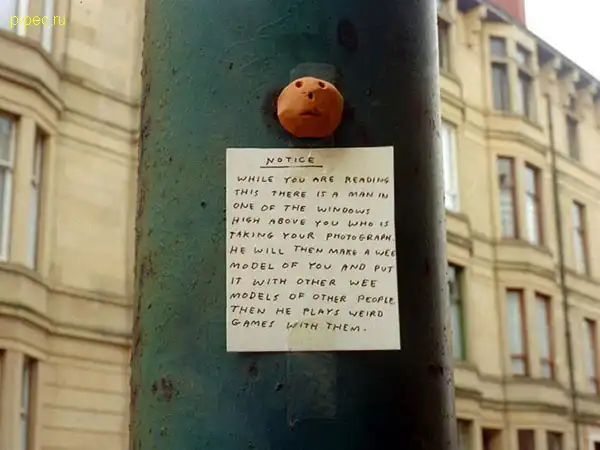 ploec.ru
NOTICE
WHILE YOU ARE READING
THIS THERE IS A MAN IN
ONE OF THE WINDOWS
HIGH ABOVE YOU WHO IS
TAKING YOUR PHOTOGRAPH.
HE WILL THEN MAKE A WEE
MODEL OF YOU AND PUT
IT WITH OTHER WEE
MODELS OF OTHER PEOPLE
THEN HE PLAYS WEIRD
GAMES WITH THEM.